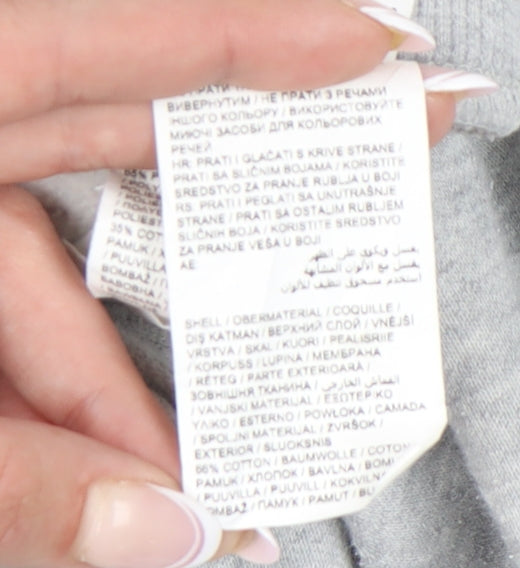 ПРАТИ
ВИВЕРНУТИМ / НЕ ПРАТИ З РЕЧАМИ
ІНШОГО КОЛЬОРУ / ВИКОРИСТОВУЙТЕ
МИЮЧІ ЗАСОБИ ДЛЯ КОЛЬОРОВИХ
РЕЧЕЙ
HR: PRATI I GLAČATI S KRIVE STRANE /
PRATI SA SLIČNIM BOJAMA / KORISTITE
SREDSTVO ZA PRANJE RUBLJA U BOJI
RS: PRATI I PEGLATI SA UNUTRAŠNJE
STRANE / PRATI SA OSTALIM RUBLJEM
SLIČNIH BOJA / KORISTITE SREDSTVO
ZA PRANJE VEŠA U BOJI
AE:
يغسل ويكوى على الظهر
يغسل مع الألوان المشابهة
استخدم مسحوق تنظيف للألوان
SHELL / OBERMATERIAL / COQUILLE /
DIŞ KATMAN / ВЕРХНИЙ СЛОЙ / VNĚJŠÍ
VRSTVA / SKAL / KUORI / PEALISRIIE
/ KORPUSS / LUPINA / МЕМБРАНА
/ RÉTEG / PARTE EXTERIOARA /
ЗОВНІШНЯ ТКАНИНА / القماش الخارجي
/ VANJSKI MATERIJAL / ΕΞΩΤΕΡΙΚΟ
ΥΛΙΚΟ / ESTERNO / POWŁOKA / CAMADA
/ SPOLJNI MATERIJAL / ZVRŠOK /
EXTERIOR / SLUOKSNIS
66% COTTON / BAUMWOLLE / COTON
PAMUK / ХЛОПОК / BAVLNA / BOM
/ PUUVILLA / PUUVILL / KOKVILN
OMBAŽ / ПАМУК / PAMUT / BU
POLIEST
35% COT
PAMUK / X
/ PUUVILLA
BOMBAŽ / П
BAVOBNA